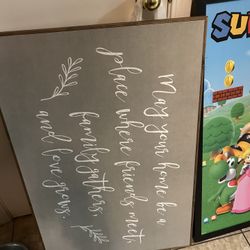 May your home be a
place where friends meet,
family gathers,
and love grows.
SU